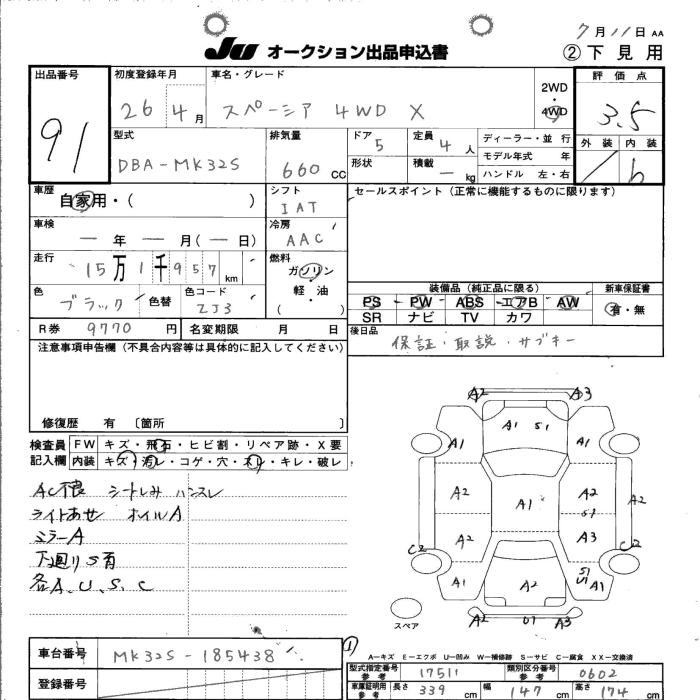 7月11日 AA
JU オークション出品申込書 ②下見用
出品番号 91
初度登録年月 26 4月
車名・グレード スペーシア 4WD X
2WD・4WD
評価点 3.5
外装 内装 b
型式 DBA-MK32S
排気量 660 CC
ドア 5
形状
定員 4人
積載 ー kg
ディーラー・並行
モデル年式 年
ハンドル 左・右
車歴 自家用・( )
シフト IAT
セールスポイント(正常に機能するものに限ります)
車検 ー年ー月(ー日)
冷房 AAC
走行 15万1千957km
燃料 ガソリン・軽・油 ( )
色 ブラック 色替
色コード ZJ3
装備品(純正品に限る)
PS PW ABS エアB AW
SR ナビ TV カワ
新車保証書 有・無
R券 9770円
名変期限 月 日
後日品 保証・取説・サブキー
注意事項申告欄(不具合内容等は具体的に記入してください)
修復歴 有 〔箇所 〕
検査員記入欄
FW キズ・飛石・ヒビ割・リペア跡・X要
内装 キズ・汚レ・コゲ・穴・スレ・キレ・破レ
AC不良 シートしみ ハンスレ
ライトあせ ホイルA
ミラーA
下廻りS有
各A.U.S.C
A2 A3
A1 A1 S1 A1
A2 A1 A2 A2
S1
A2 A3
C2 C2
A1 A2 S1 U1 A1
スペア
A2 U1 A3
A-キズ E-エクボ U-凹み W-補修跡 S-サビ C-腐食 XX-交換済
車台番号 MK32S-185438
登録番号
①
型式指定番号 参考 17511
類別区分番号 参考 0602
車庫証明用 参考 長さ 339 cm 幅 147 cm 高さ 174 cm